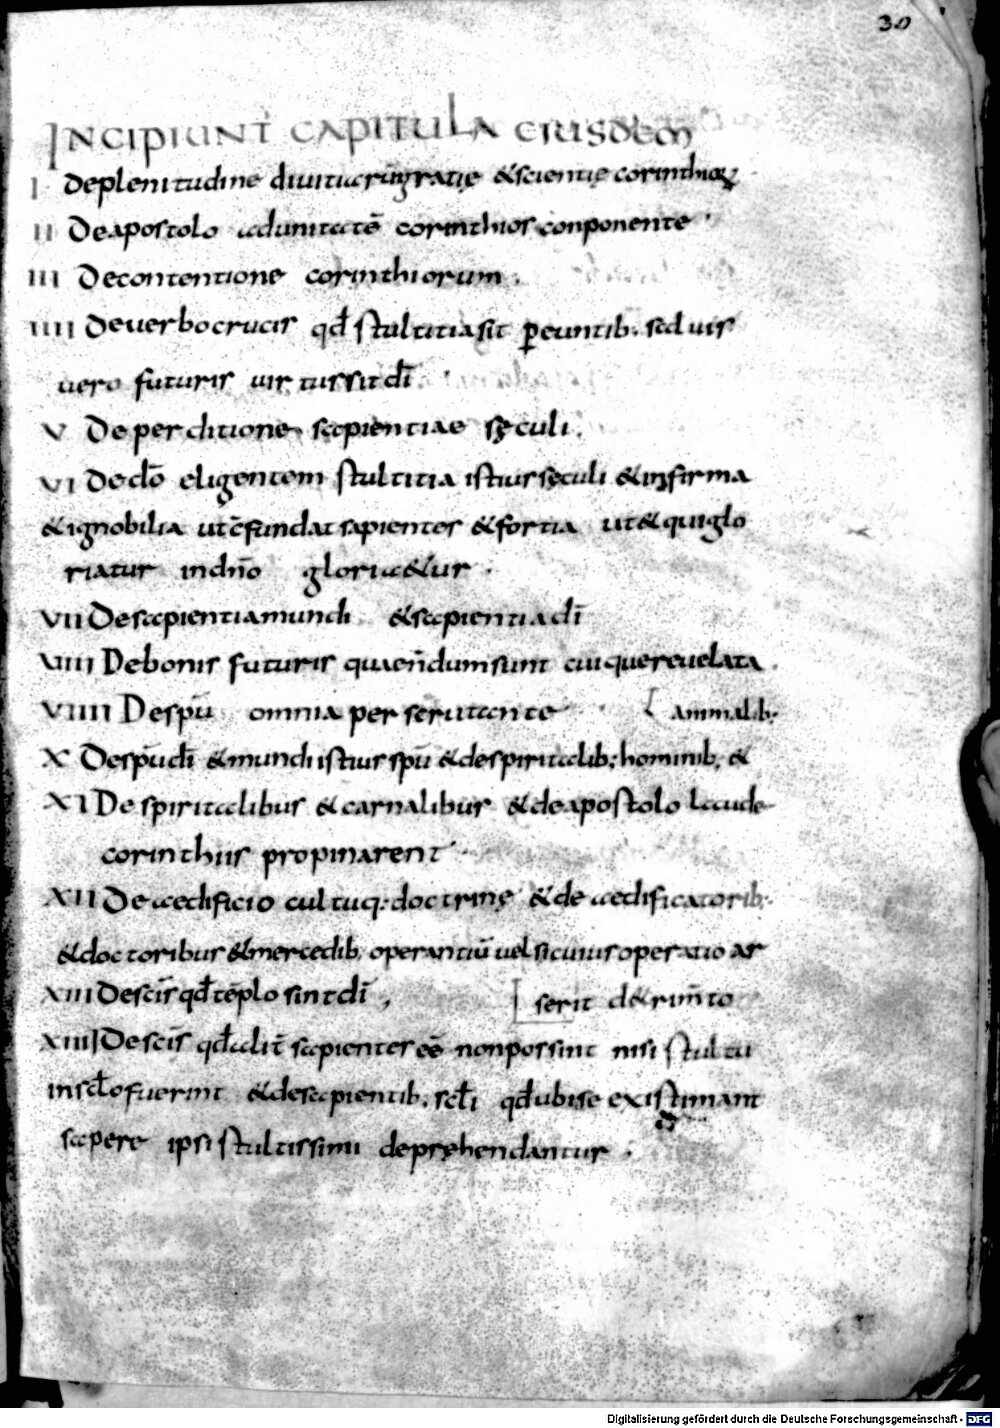 30
INCIPIUNT CAPITULA EIUSDEM
I Deplenitudine diuitiarū gratię &scientię corinthioꝝ
II Deapostolo adunitatē corinthios conponente
III Decontentione corinthiorum.
IIII Deuerbocrucis qđ stultitiasit ꝑeuntib. sed uis
uero futuris uirtussitdī.
V Deperditione sapientiae sęculi.
VI Dedō eligentem stultitia istiussęculi &infirma
&ignobilia utc̄fundatsapientes &fortia ut&quiglo
riatur indn̄o glori&ur.
VII Desapientiamundi &sapientiadī
VIII Debonis futuris quaen̄dumsunt cuiquereuelata.
VIIII Despū omnia perscrutante [animalib;
X Despūdī &mundiistius spū &despiritalib; hominib; &
XI Despiritalibus &carnalibus &deapostolo lacude
corinthiis propinarent
XII Deaedificio cultuq; doctrinę &deaedificatorib;
&doctoribus &mercedib; operantiū uelsicuiusoperatio ar
XIII Descīs qđtēplo sintdī, [serit d&rim̄to
XIIII Descīs qđalit̄ sapientesee̅ nonpossint nisi stulti
insclōfuerint &desapientib. sclī qđubise existimant
sapere ipsi stultissimi depręhendantur.
Digitalisierung gefördert durch die Deutsche Forschungsgemeinschaft - DFG